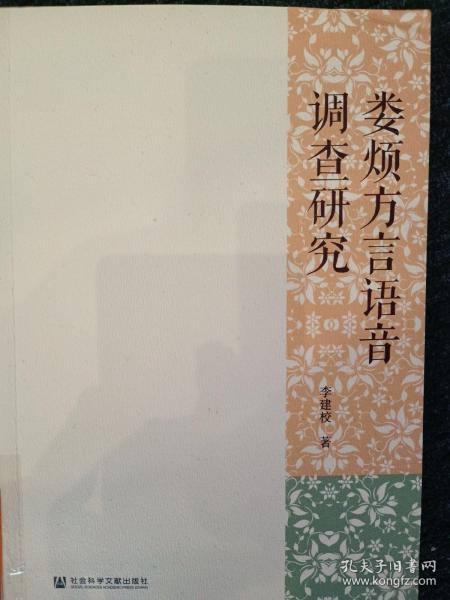 娄烦方言语音
调查研究
李建校 著
社会科学文献出版社
SOCIAL SCIENCES ACADEMIC PRESS (CHINA)
孔夫子旧书网
www.kongfz.com